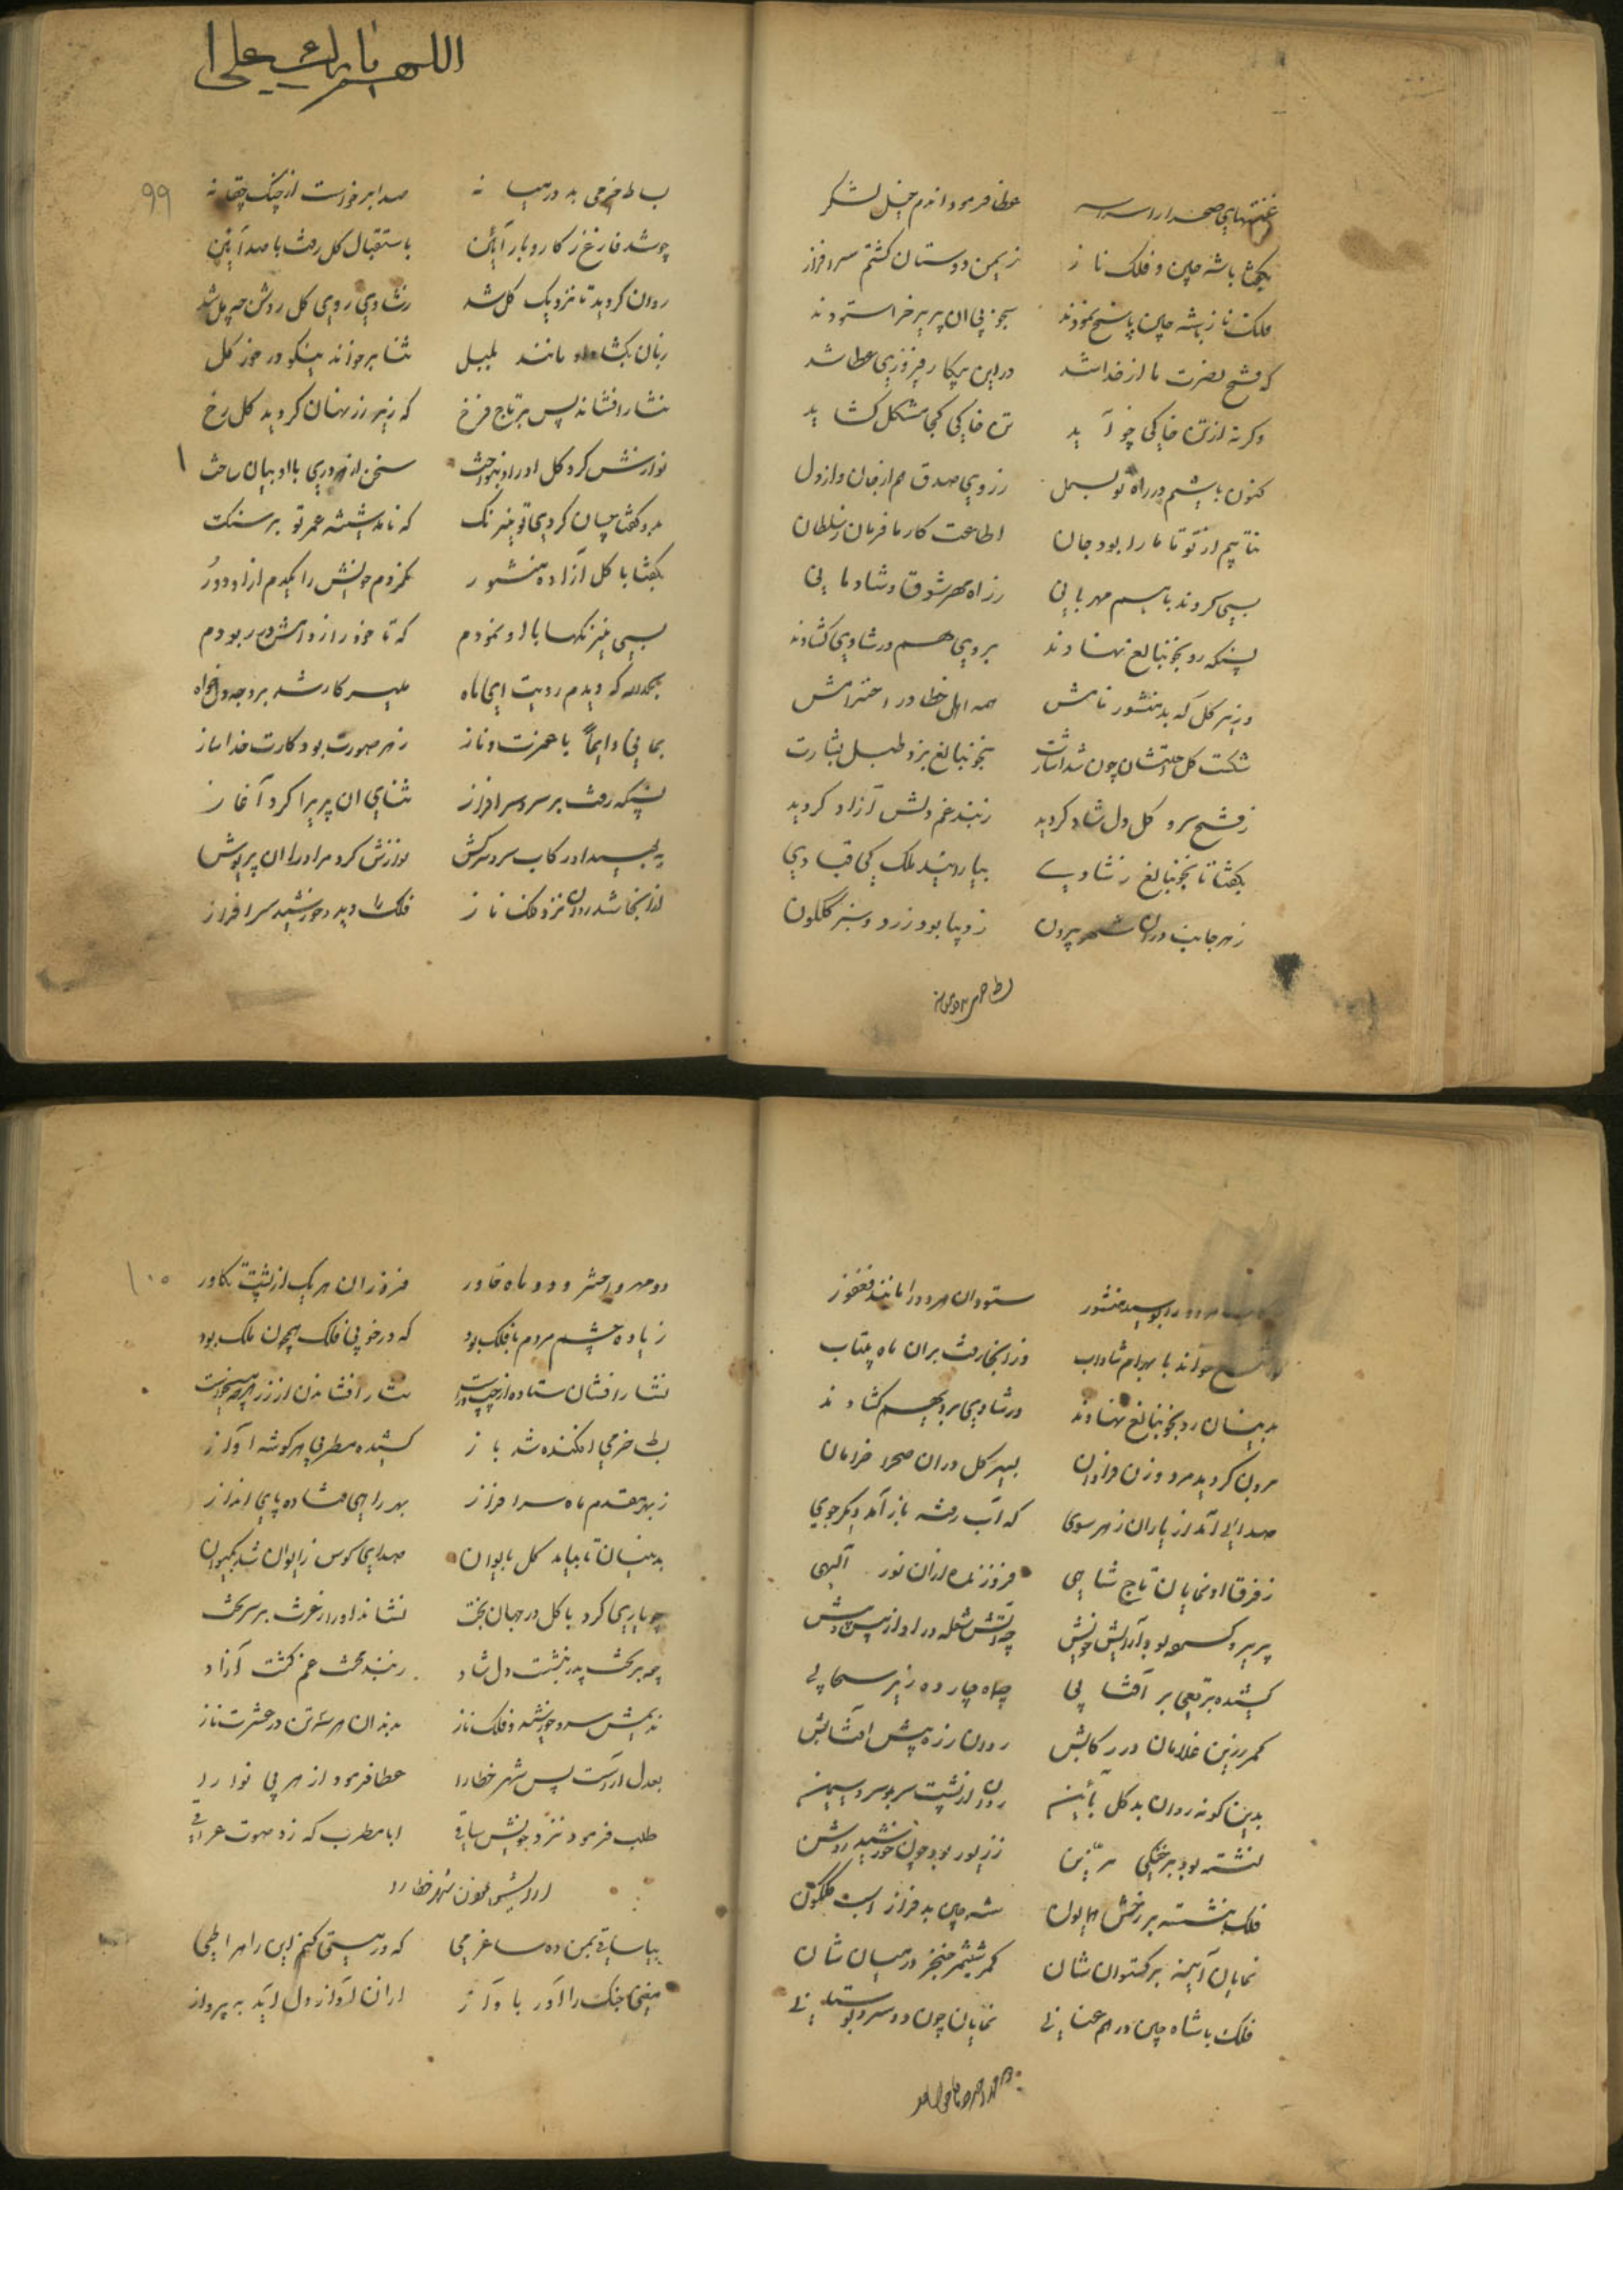 غنیمتهای صحرا را سراسر عطا فرمود اندم خیل لشکر
بگفتا باشه چین و فلک ناز زیمن دوستان کشتم سرافراز
ملک ناز بشه چین پاسخ نمودند بجوز پی ان پریرخرا ستودند
که فتح نصرت ما از خدا شد در این پیکار فیروزی عطا شد
وکرنه از تن خاکی چو آید تن خاکی کجا مشکل کشاید
کنون باشیم در راه تو بسمل ز روی صدق هم از جان و از دل
نتابیم از تو تا ما را بود جان اطاعت کار ما فرمان ز سلطان
بسی کردند باهم مهربانی ز راه مهر شوق و شادمانی
پسنکه رو بجوبنالغ نهادند بروی هم در شادی کشادند
وزیر کل که بد منشور نامش همه اهل خطا در احترامش
شکست کل چیتشان چون شد اشارت بجوبنالغ بزد طبل بشارت
ز فتح سرو کل دل شاد کردید ز بند غم دلش آزاد کردید
بگفتا تا بجوبنالغ ز شادی بیارایند ملک کی قبادی
ز هر جانب دران شهر بیرون ز دیبا بود زرد و سبز کلکون
اللهم بارک علی
۹۹
بساط خرمی بد در میانه صدا برخواست از چنک چغانه
چو شد فارغ ز کار و بار آیین باستقبال کل رفت با صد آیین
روان کردید تا نزدیک کل شد ز شادی روی کل روشن چو مل شد
زبان بکشاد او مانند بلبل ثنا برخواند نیکو در خور کل
نثار افشاند پس بر تاج فرخ که زیر زر نهان کردید کل رخ
نوازش کرد کل او را و بنواخت سخن از دوری با او بیان ساخت
بدو کفتا چسان کردی تو نیرنک که نامد شیشه عمر تو بر سنک
بگفتا با کل آزاده منشور نکردم خویش را یکدم از او دور
بسی نیرنکها با او نمودم که تا خود را ز دامش در ربودم
بحمدالله که دیدم رویت ای ماه میسر کار شد بر وجه دلخواه
بمانی دایماً با عزت و ناز ز هر صورت بود کارت خدا ساز
پسنکه رفت بر سرو سرافراز ثنای ان پریرا کرد آغاز
ببوسید او رکاب سرو سرکش نوازش کرد مر او را ان پریوش
از انجا شد روان نزد ملک ناز فلک را دید و خورشید سرافراز
ببوسید منشور ستود ان هر دو را مانند فغفور
خواند با بهرام شاداب وز انجا رفت بر ان ماه پرتاب
بدینسان رو بجوبنالغ نهادند در شادی بروی هم کشادند
برون کردید مرد و زن فراوان بسیر کل دران صحرا خرامان
صدای آمد از یاران ز هر سوی که آب رفته باز آمد دیکر جوی
ز فرق او نمایان تاج شاهی فروزنده از ان نور آلهی
پریرو کسمه بود آرایش خویش چو آتش شعله‌ور او از پس و پیش
کشیده برقعی بر آفتابی چو ماه چارده زیر سحابی
کمر زرین غلامان در رکابش روان زره پیش افتابش
بدین کونه روان بد کل بآیین روان از پشت سر بد سرو سیمین
نشسته بود بر خنکی ز زیور بود چون خورشید روشن
فلک بنشسته بر رخش همایون شه چین بد فراز اسب کلکون
نمایان آینه برکستوان شان کمر شمشیر خنجر در میان شان
فلک با شاه چین در هم عنانی نمایان چون دو سرو بوستانی
۱۰۰
دو مهر و اختر و دو ماه خاور فروزان هر یک از پشت تکاور
زیاده چشم مردم با فلک بود که در خوبی فلک همچون ملک بود
نثار افشان ستاده از چپ و راست نثار افشاندن از زر هر چه میخواست
بساط خرمی افکنده شد باز کشیده مطربی هر کوشه آواز
ز بهر مقدم ماه سرافراز بهر راهی فتاده پای انداز
بدینسان تا بیامد کل بایوان صدای کوس ز ایوان شد بکیوان
چو یاری کرد با کل در جهان بخت نشاند او را ز عزت بر سر تخت
چه بر تخت پدر بنشست دل شاد ز بند محنت غم کشت آزاد
ندیمش سرو خورشید و فلک ناز بدند ان هر سه تن در عشرت ناز
بعدل اراست پس شهر خطا را عطا فرمود از هر بی نوا را
طلب فرمود نزد خویش ساقی ابا مطرب که زد صوت عراقی
بیا ساقی بمن ده ساغر می که در مستی کنم این راه را طی
مغنی چنک را آور بآواز از ان آواز دل آید به پرواز